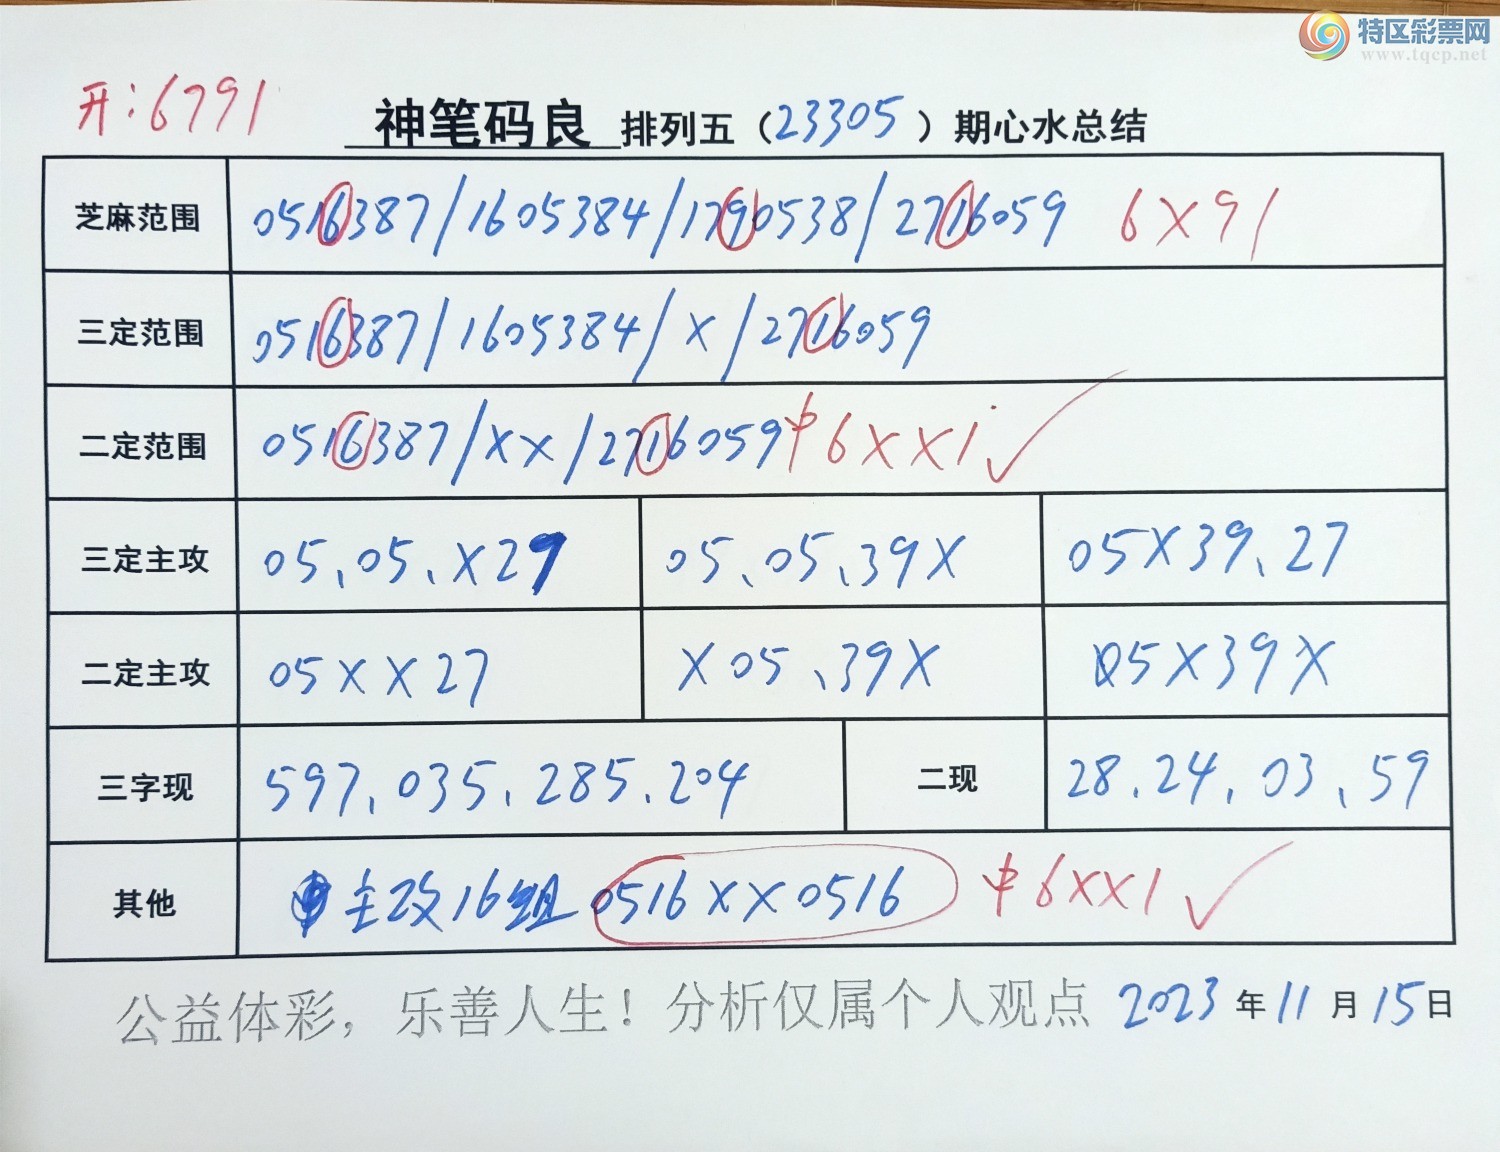 特区彩票网
www.tqcp.net
开:6791
神笔码良 排列五（23305）期心水总结
芝麻范围 0516387/1605384/1790538/2716059 6X91
三定范围 0516387/1605384/X/2716059
二定范围 0516387/XX/2716059 中6XX1✓
三定主攻 05、05、X29 05、05、39X 05X39、27
二定主攻 05XX27 X05、39X 05X39X
三字现 597、035、285、204 二现 28、24、03、59
其他 主攻16组 0516XX0516 中6XX1✓
公益体彩，乐善人生！分析仅属个人观点 2023年11月15日